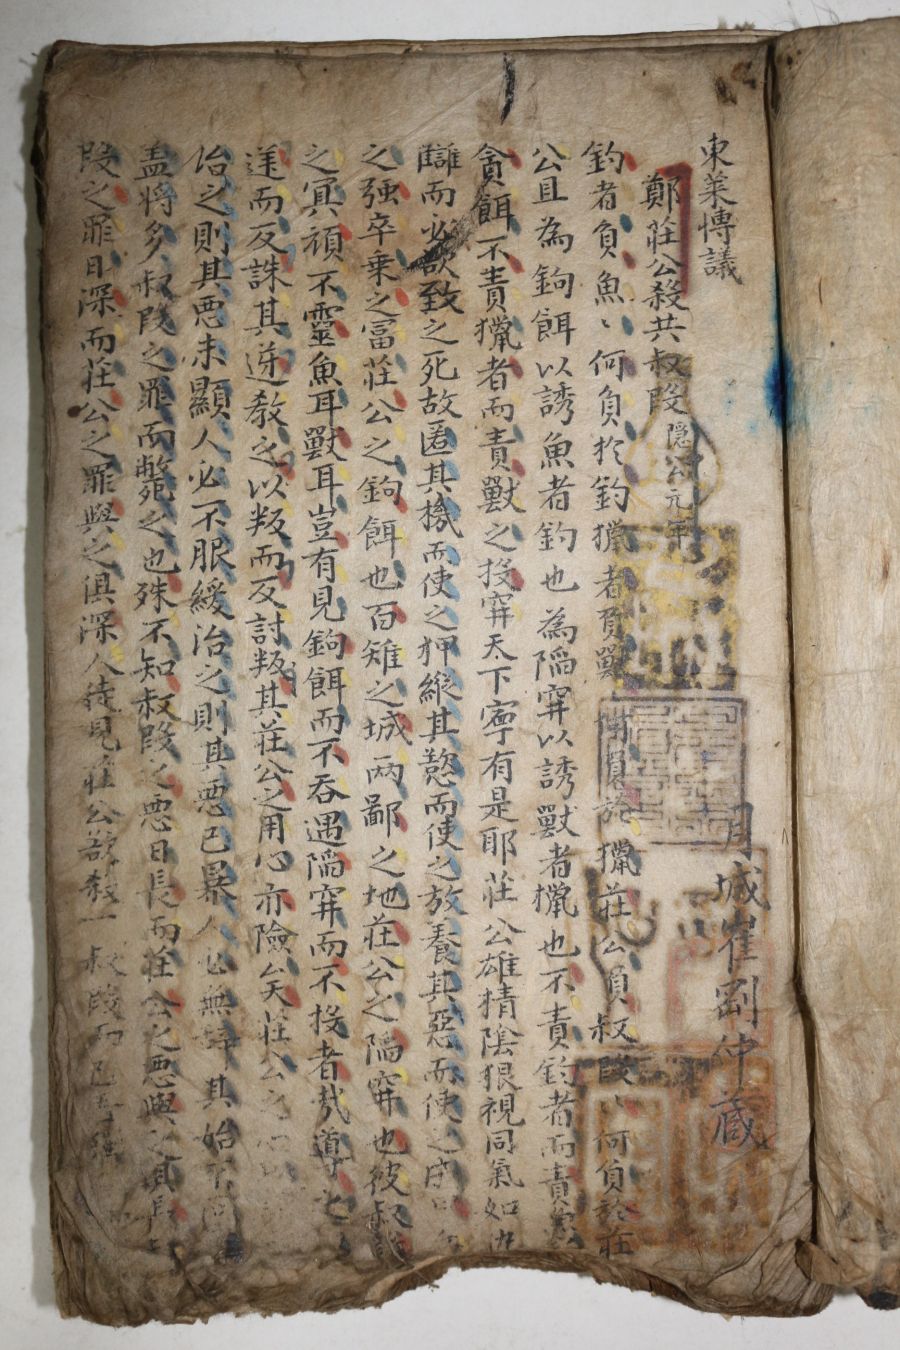 東萊博議
月城崔劉仲蔵
鄭莊公殺共叔段 隠公元年
釣者負魚〻何負於釣獵者負獸〻何負於獵莊公負叔段〻何負於莊
公且為鉤餌以誘魚者釣也為陥穽以誘獸者獵也不責釣者而責魚
貪餌不責獵者而責獸之投穽天下寧有是耶莊公雄猜陰狠視同氣如
讎而必欲致之死故匿其機而使之狎縦其慾而使之放養其惡而使之成
之强卒乗之冨莊公之鉤餌也百雉之城両鄙之地莊公之陥穽也彼叔段
之冥頑不靈魚耳獸耳豈有見鉤餌而不吞遇陥穽而不投者㢤導之
逆而反誅其逆教之以叛而反討叛其莊公之用心亦險矣莊公之心
治之則其悪未顯人必不服緩治之則其悪已暴人必無辞其始不問
盖将多叔段之罪而斃之也殊不知叔段之悪日長而莊公之悪與之俱長
段之罪日深而莊公之罪與之俱深人徒見莊公欲殺一叔段而